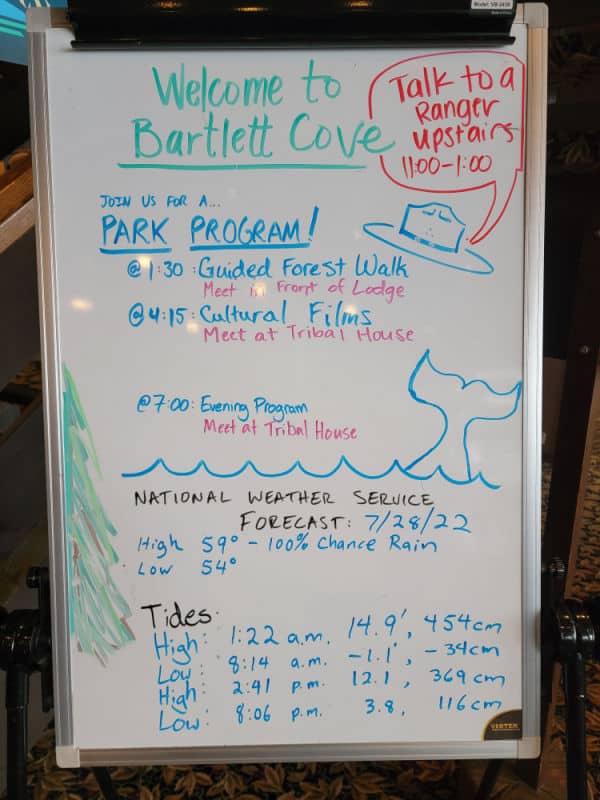 Model: VB-2436
Welcome to
Bartlett Cove
Talk to a
Ranger
upstairs
11:00-1:00
JOIN US FOR A...
PARK PROGRAM!
@ 1:30 : Guided Forest Walk
Meet in Front of Lodge
@ 4:15 : Cultural Films
Meet at Tribal House
@ 7:00 : Evening Program
Meet at Tribal House
NATIONAL WEATHER SERVICE
FORECAST: 7/28/22
High 59° - 100% Chance Rain
Low 54°
Tides:
High: 1:22 a.m. 14.9', 454cm
Low: 8:14 a.m. -1.1', -34cm
High: 2:41 p.m. 12.1', 369cm
Low: 8:06 p.m. 3.8, 116cm